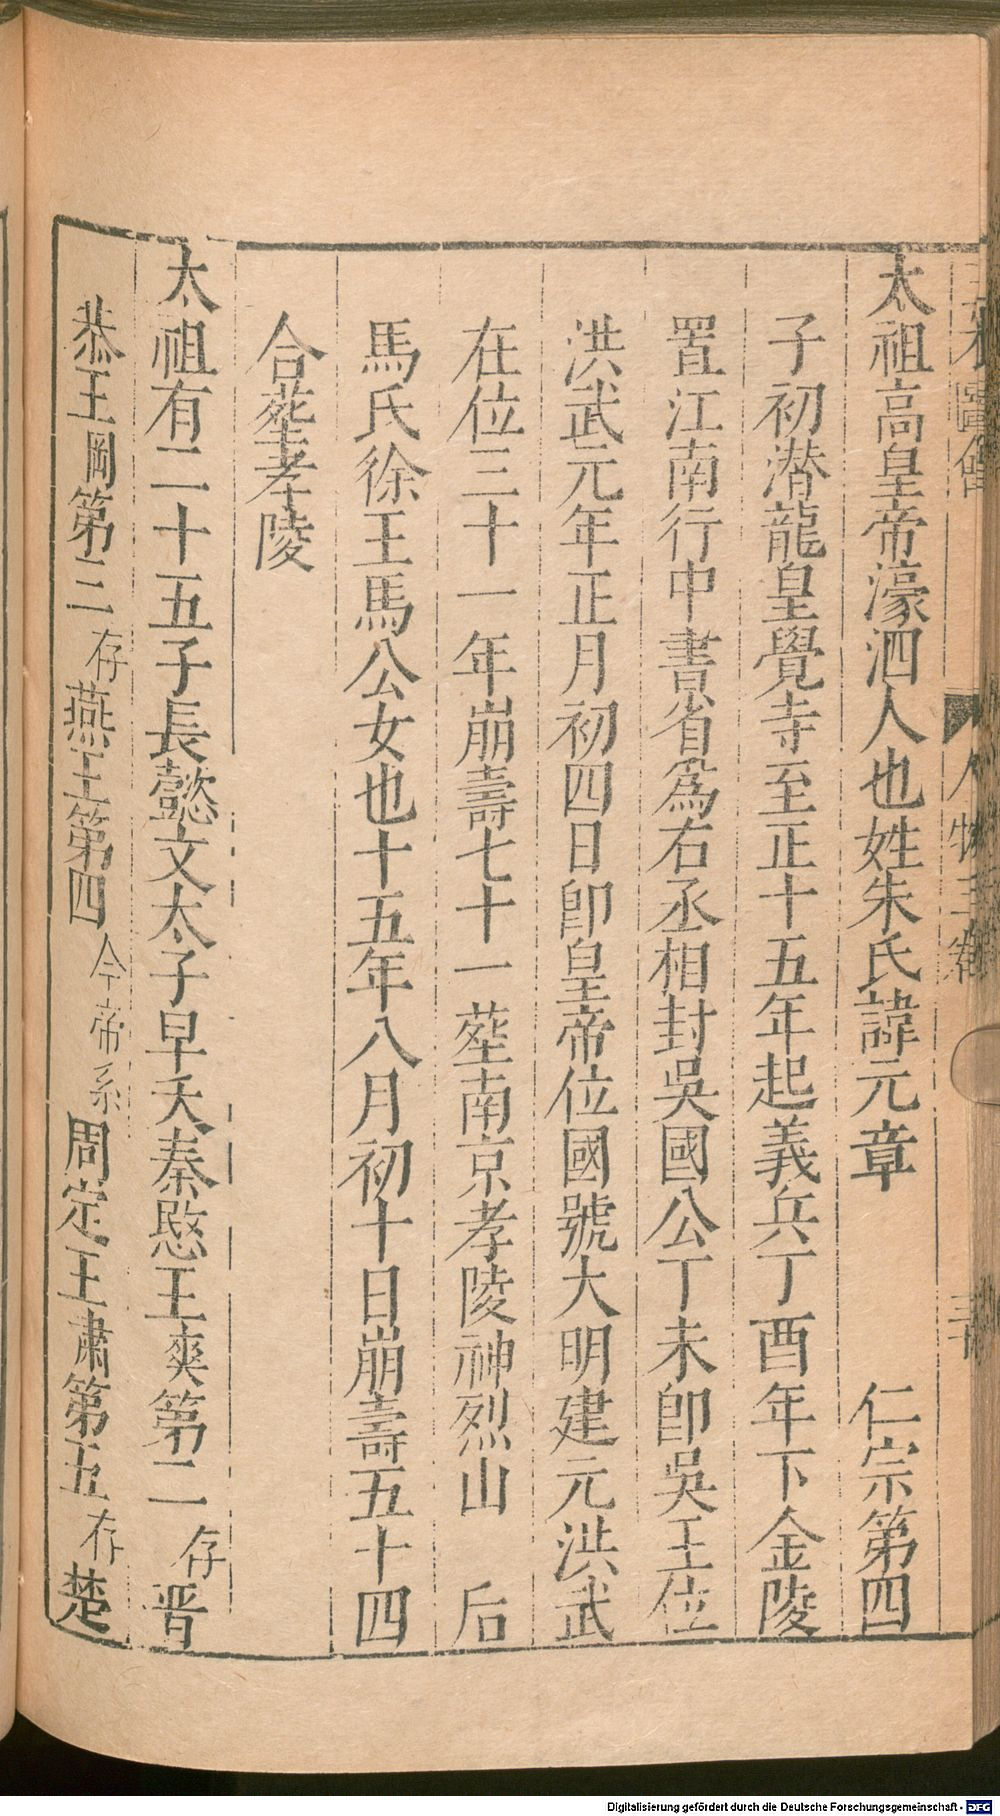 太祖高皇帝濠泗人也姓朱氏諱元章 仁宗第四
子初潜龍皇覺寺至正十五年起義兵丁酉年下金陵
置江南行中書省為右丞相封吳國公丁未卽吳王位
洪武元年正月初四日卽皇帝位國號大明建元洪武
在位三十一年崩壽七十一葬南京孝陵神烈山 后
馬氏徐王馬公女也十五年八月初十日崩壽五十四
合葬孝陵
太祖有二十五子長懿文太子早夭秦愍王爽第二存晋
恭王岡第三存燕王第四今帝系周定王肅第五存楚
人物三卷
Digitalisierung gefördert durch die Deutsche Forschungsgemeinschaft - DFG